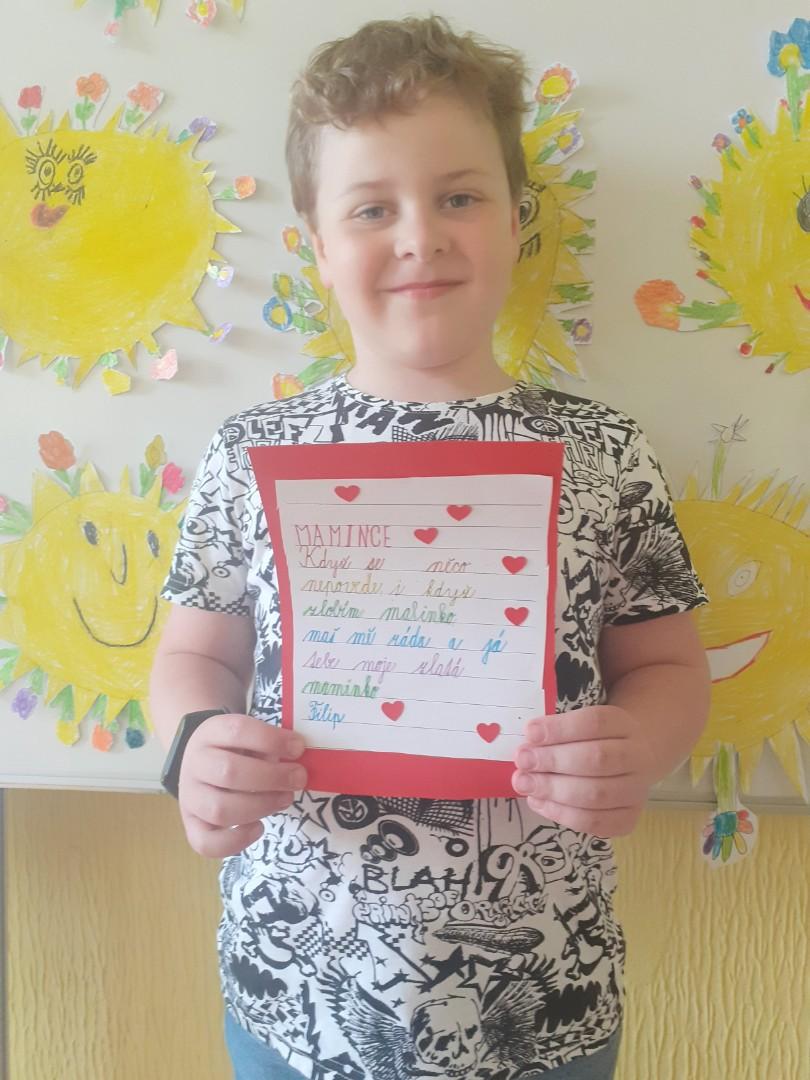 MAMINCE
Když se něco
nepovede i když
zlobím malinko
maš mě ráda a já
tebe moje zlatá
maminko
Filip
BLAH